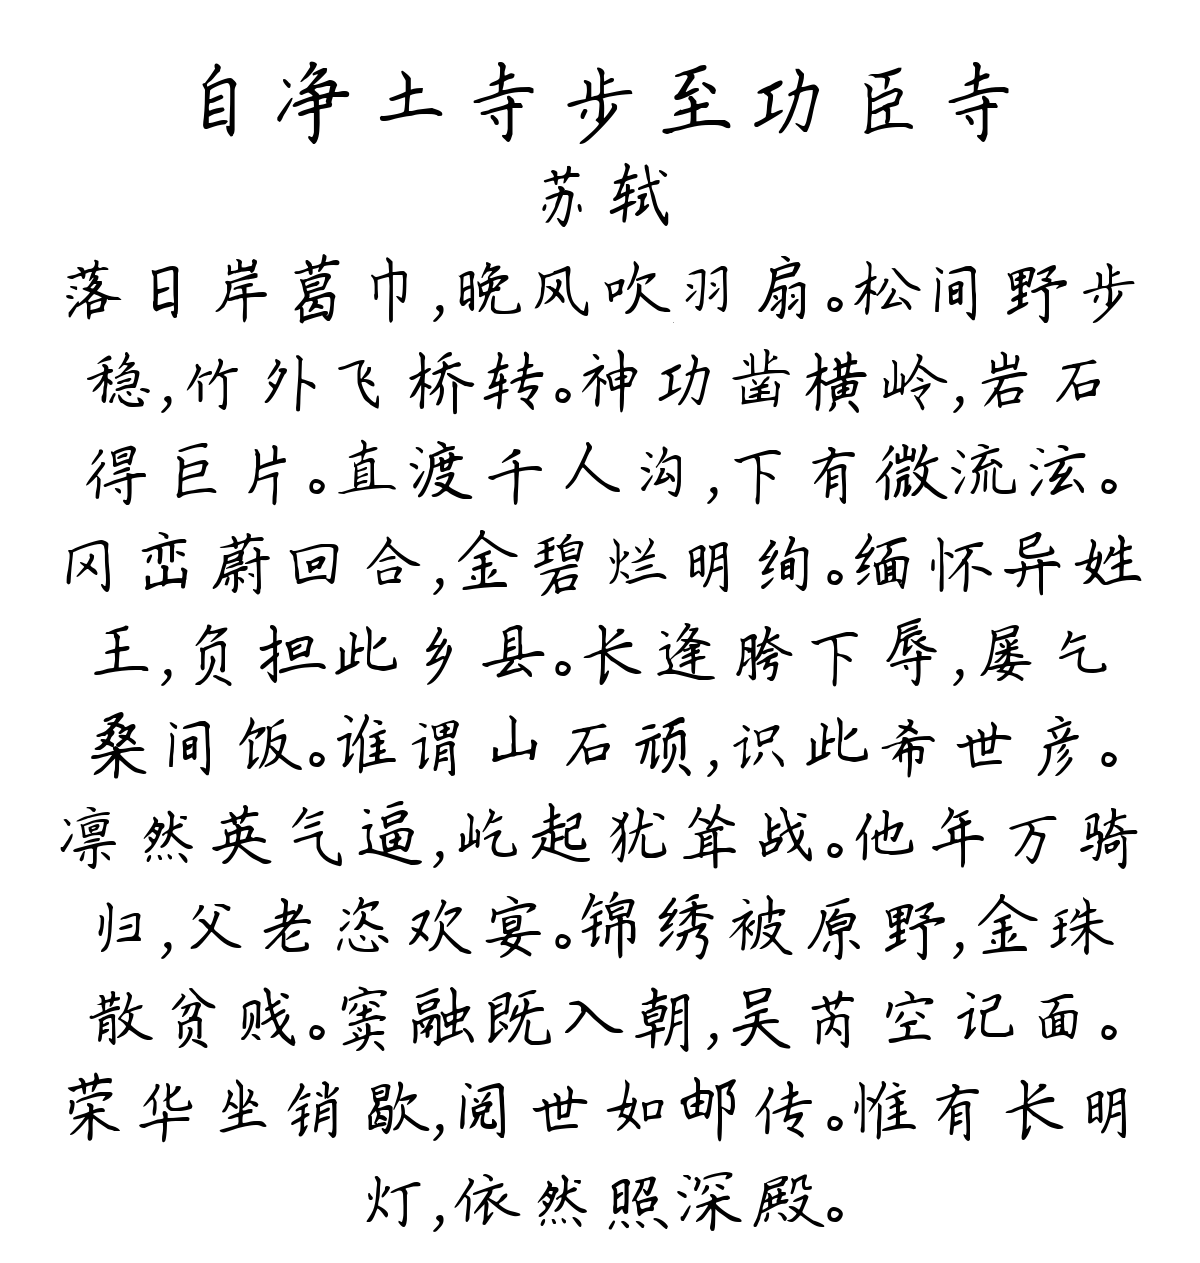 自净土寺步至功臣寺
苏轼
落日岸葛巾,晚风吹羽扇。松间野步
稳,竹外飞桥转。神功凿横岭,岩石
得巨片。直渡千人沟,下有微流泫。
冈峦蔚回合,金碧烂明绚。缅怀异姓
王,负担此乡县。长逢胯下辱,屡乞
桑间饭。谁谓山石顽,识此希世彦。
凛然英气逼,屹起犹耸战。他年万骑
归,父老恣欢宴。锦绣被原野,金珠
散贫贱。窦融既入朝,吴芮空记面。
荣华坐销歇,阅世如邮传。惟有长明
灯,依然照深殿。